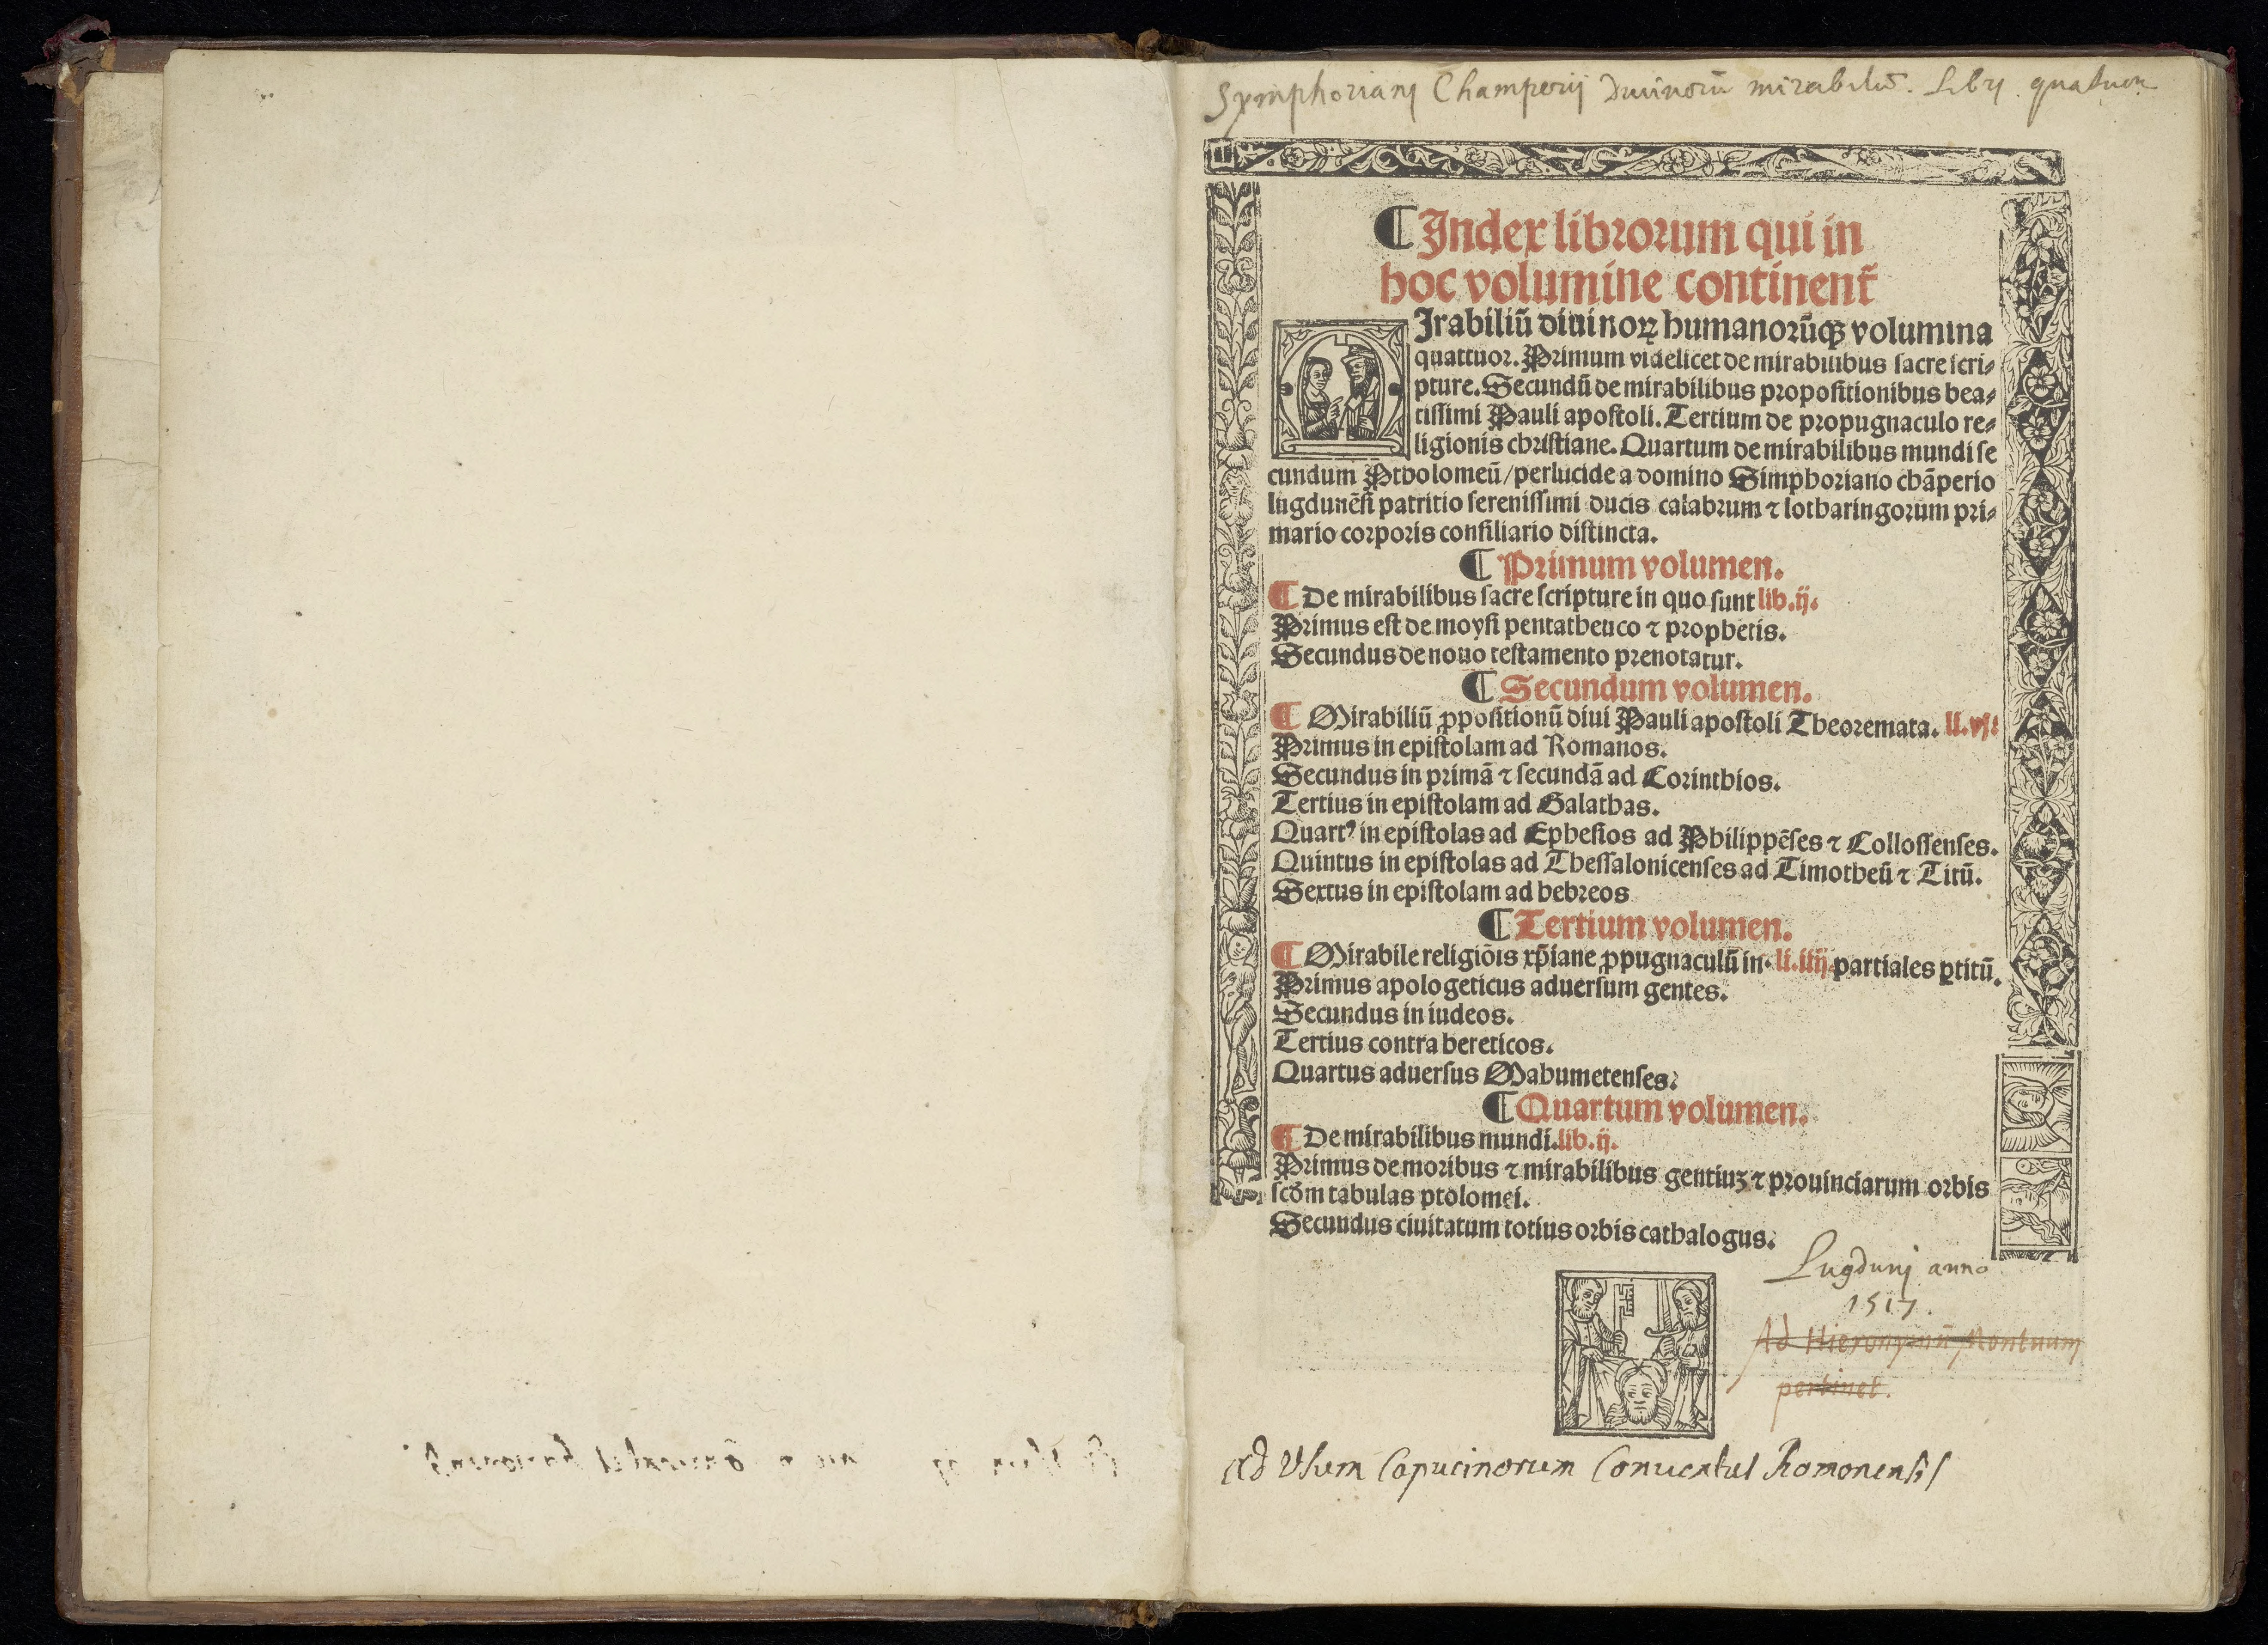 Symphorianj Champerij Diuinorū mirabiliū. Libri quatuor
¶ Index librorum qui in
hoc volumine continent᷑
Irabiliū diuinoꝝ humanorūqꝫ volumina
quattuor. Primum videlicet de mirabilibus sacre scri-
pture. Secundū de mirabilibus propositionibus bea-
tissimi Pauli apostoli. Tertium de propugnaculo re-
ligionis christiane. Quartum de mirabilibus mundi se
cundum Ptholomeū/perlucide a domino Simphoriano chāperio
lugdunēsi patritio serenissimi ducis calabrum ⁊ lotharingorum pri-
mario corporis consiliario distincta.
¶ Primum volumen.
¶ De mirabilibus sacre scripture in quo sunt lib.ij.
Primus est de moysi pentatheuco ⁊ prophetis.
Secundus de nouo testamento prenotatur.
¶ Secundum volumen.
¶ Mirabiliū ꝓpositionū diui Pauli apostoli Theoremata. ll.vj.
Primus in epistolam ad Romanos.
Secundus in primā ⁊ secundā ad Corinthios.
Tertius in epistolam ad Galathas.
Quartꝰ in epistolas ad Ephesios ad Philippēses ⁊ Collossenses.
Quintus in epistolas ad Thessalonicenses ad Timotheū ⁊ Titū.
Sextus in epistolam ad hebreos
¶ Tertium volumen.
¶ Mirabile religiōis xp̄iane ꝓpugnaculū in. li.iiij. partiales ꝑtitū.
Primus apologeticus aduersum gentes.
Secundus in iudeos.
Tertius contra hereticos.
Quartus aduersus Mahumetenses.
¶ Quartum volumen.
¶ De mirabilibus mundi.lib.ij.
Primus de moribus ⁊ mirabilibus gentiuꝫ ⁊ prouinciarum orbis
scd̄m tabulas ptolomei.
Secundus ciuitatum totius orbis cathalogus.
Lugdunj anno
1517.
Ad Hieronymū
pertinet.
Ad Vsum Capucinorum Conuentus Romonensis